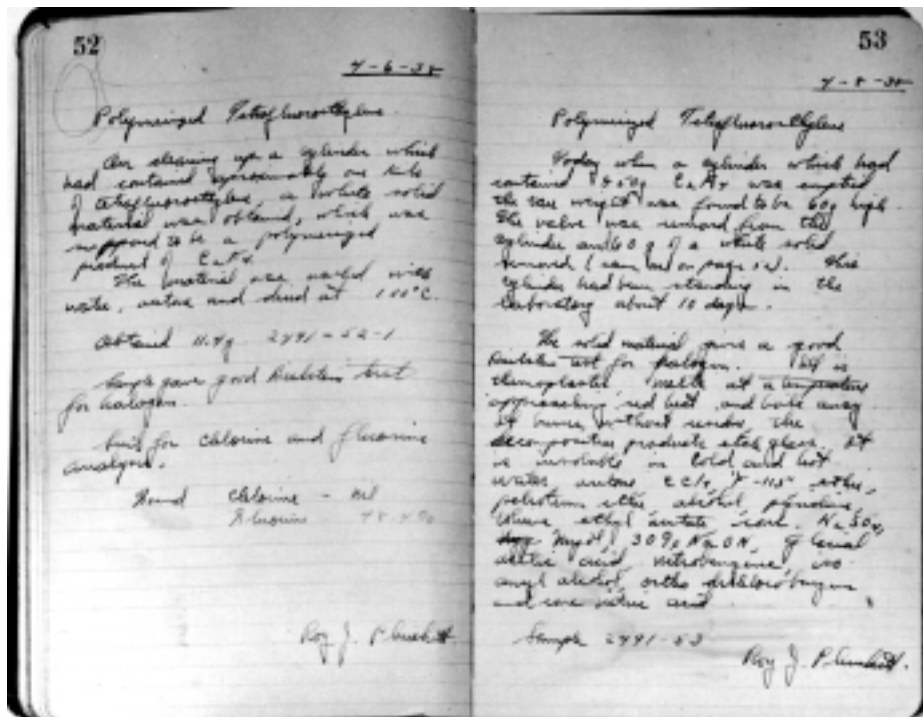 52
4-6-38
Polymerized Tetrafluoroethylene
On cleaning up a cylinder which
had contained approximately one kilo
of tetrafluoroethylene, a white solid
material was obtained, which was
supposed to be a polymerized
product of C2F4.
The material was washed with
water, acetone and dried at 100°C.
Obtained 11.4g 2441-52-1
Sample gave good Beilstein test
for halogen.
for chlorine and fluorine
analysis.
Found Chlorine - nil
Fluorine
Roy J. Plunkett
53
4-8-38
Polymerized Tetrafluoroethylene
Today when a cylinder which had
contained C2F4 was emptied
the tare weight was found to be 60g high.
The valve was removed from the
cylinder and 60 g of a white solid
removed on page This
cylinder had been standing in the
laboratory about 10 days.
The solid material gave a good
Beilstein test for halogen. It is
thermoplastic melts at a temperature
approaching red heat, and boils away.
It burns without residue, the
decomposition products etch glass. It
is insoluble in cold and hot
water acetone ether,
petroleum ether alcohol pyridine
ethyl acetate conc.
30% NaOH, glacial
acetic acid, nitrobenzene, iso
amyl alcohol, ortho dichlorobenzene
and conc nitric acid
Sample 2441-53
Roy J. Plunkett.